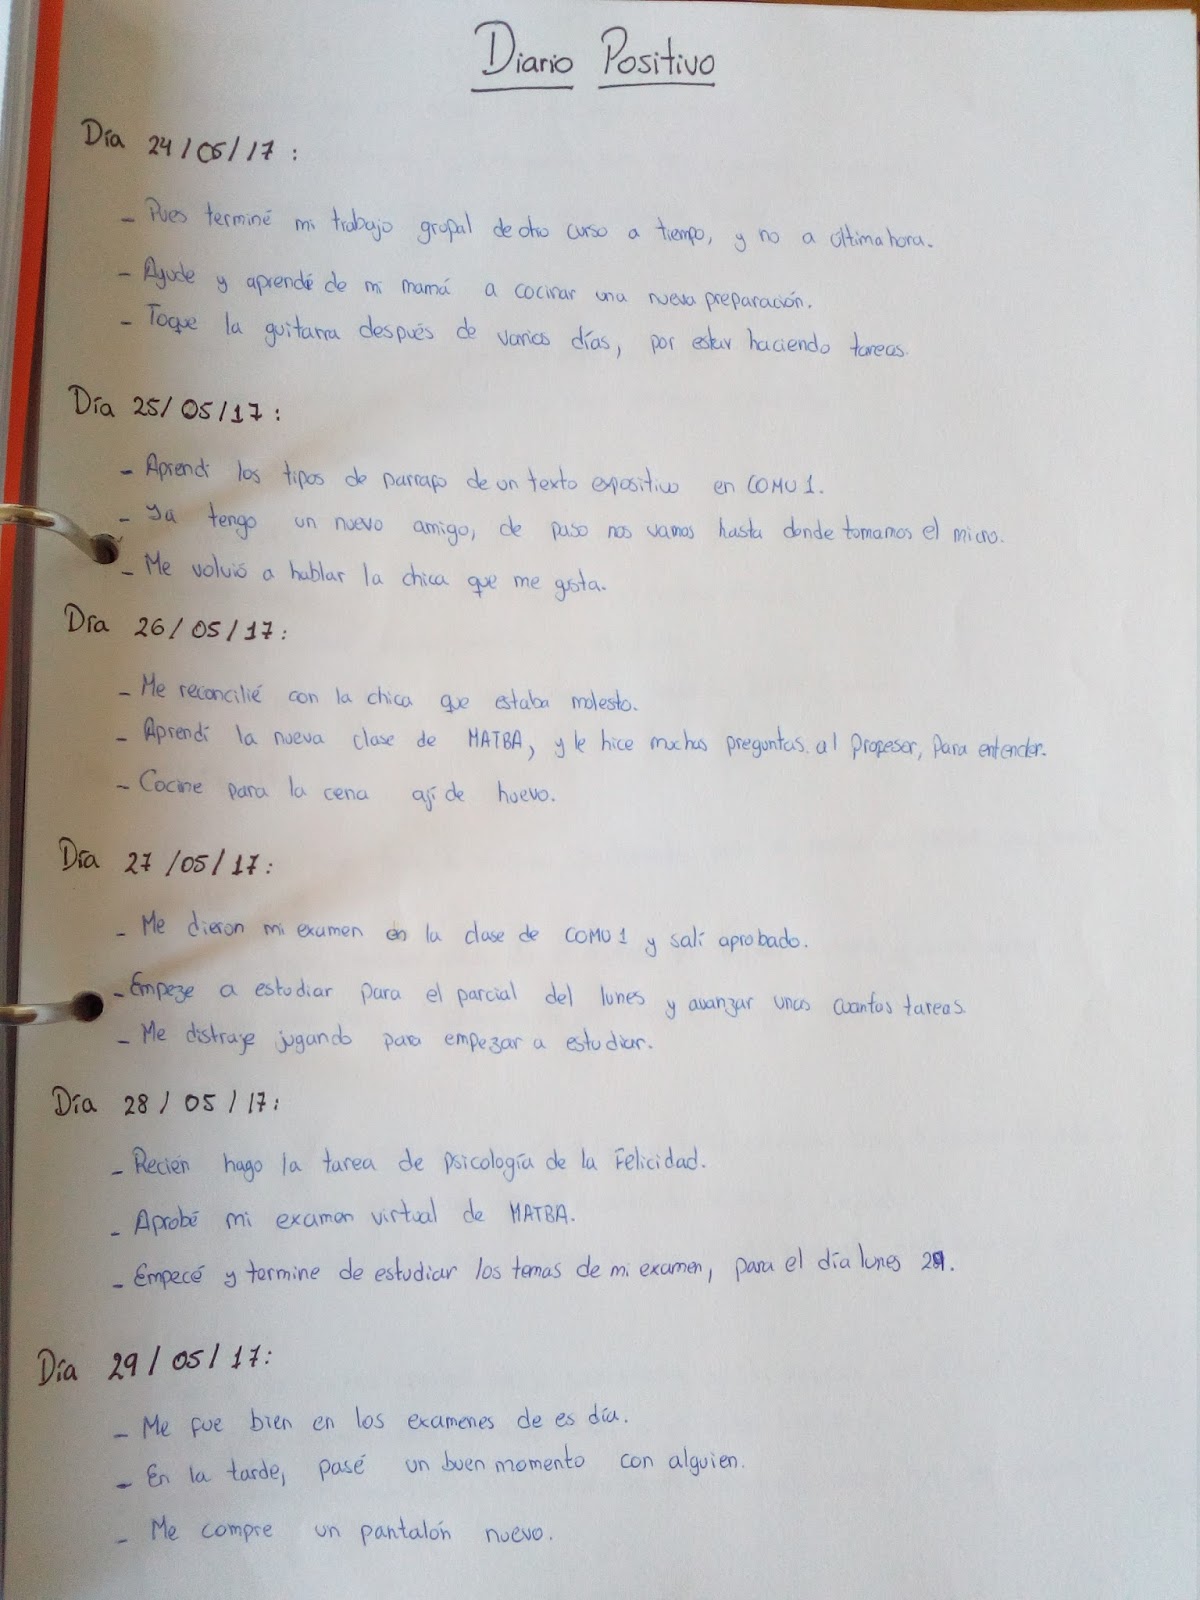 Diario Positivo
Día 24/05/17:
- Pues terminé mi trabajo grupal de otro curso a tiempo, y no a última hora.
- Ayude y aprendé de mi mamá a cocinar una nueva preparación.
- Toque la guitarra después de varios días, por estar haciendo tareas.
Día 25/05/17:
- Aprendí los tipos de parrafo de un texto expositivo en COMU 1.
- Ya tengo un nuevo amigo, de paso nos vamos hasta donde tomamos el micro.
- Me volvió a hablar la chica que me gusta.
Día 26/05/17:
- Me reconcilié con la chica que estaba molesto.
- Aprendí la nueva clase de MATBA, y le hice muchas preguntas al profesor, para entender.
- Cocine para la cena ají de huevo.
Día 27/05/17:
- Me dieron mi examen en la clase de COMU 1 y salí aprobado.
- Empeze a estudiar para el parcial del lunes y avanzar unas cuantas tareas.
- Me distraje jugando para empezar a estudiar.
Día 28/05/17:
- Recién hago la tarea de psicología de la Felicidad.
- Aprobé mi examen virtual de MATBA.
- Empecé y termine de estudiar los temas de mi examen, para el día lunes 29.
Día 29/05/17:
- Me fue bien en los examenes de es día.
- En la tarde, pasé un buen momento con alguien.
- Me compre un pantalón nuevo.